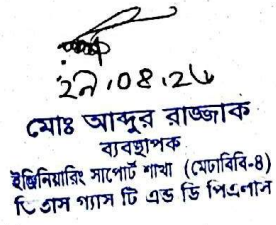 ২৭.০৪.২৬
মোঃ আব্দুর রাজ্জাক
ব্যবস্থাপক
ইঞ্জিনিয়ারিং সাপোর্ট শাখা (মেঢাবিবি-৪)
তিতাস গ্যাস টি এন্ড ডি পিএলসি